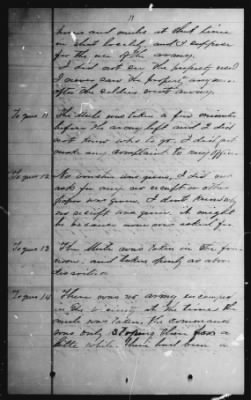 11
horses and mules at that time
in that locality and I suppose
for the use of the army.
I did not see the property used
I never saw the property any more
after the soldiers went away.
To ques 11 The Mule was taken a few minutes
before the army left and I did
not know who to go. I did not
make any complaint to any officer
To ques 12 No voucher was given, I did not
ask for any no receipt or other
paper was given. I dont know why
no receipt was given. It might
be because none was asked for.
To ques 13 The Mule was taken in the fore
noon and taken openly as above
described
To ques 14 There was no army encamped
in the vicinity at the time the
mule was taken. The command
was only stoping there for a
little while. There had been a